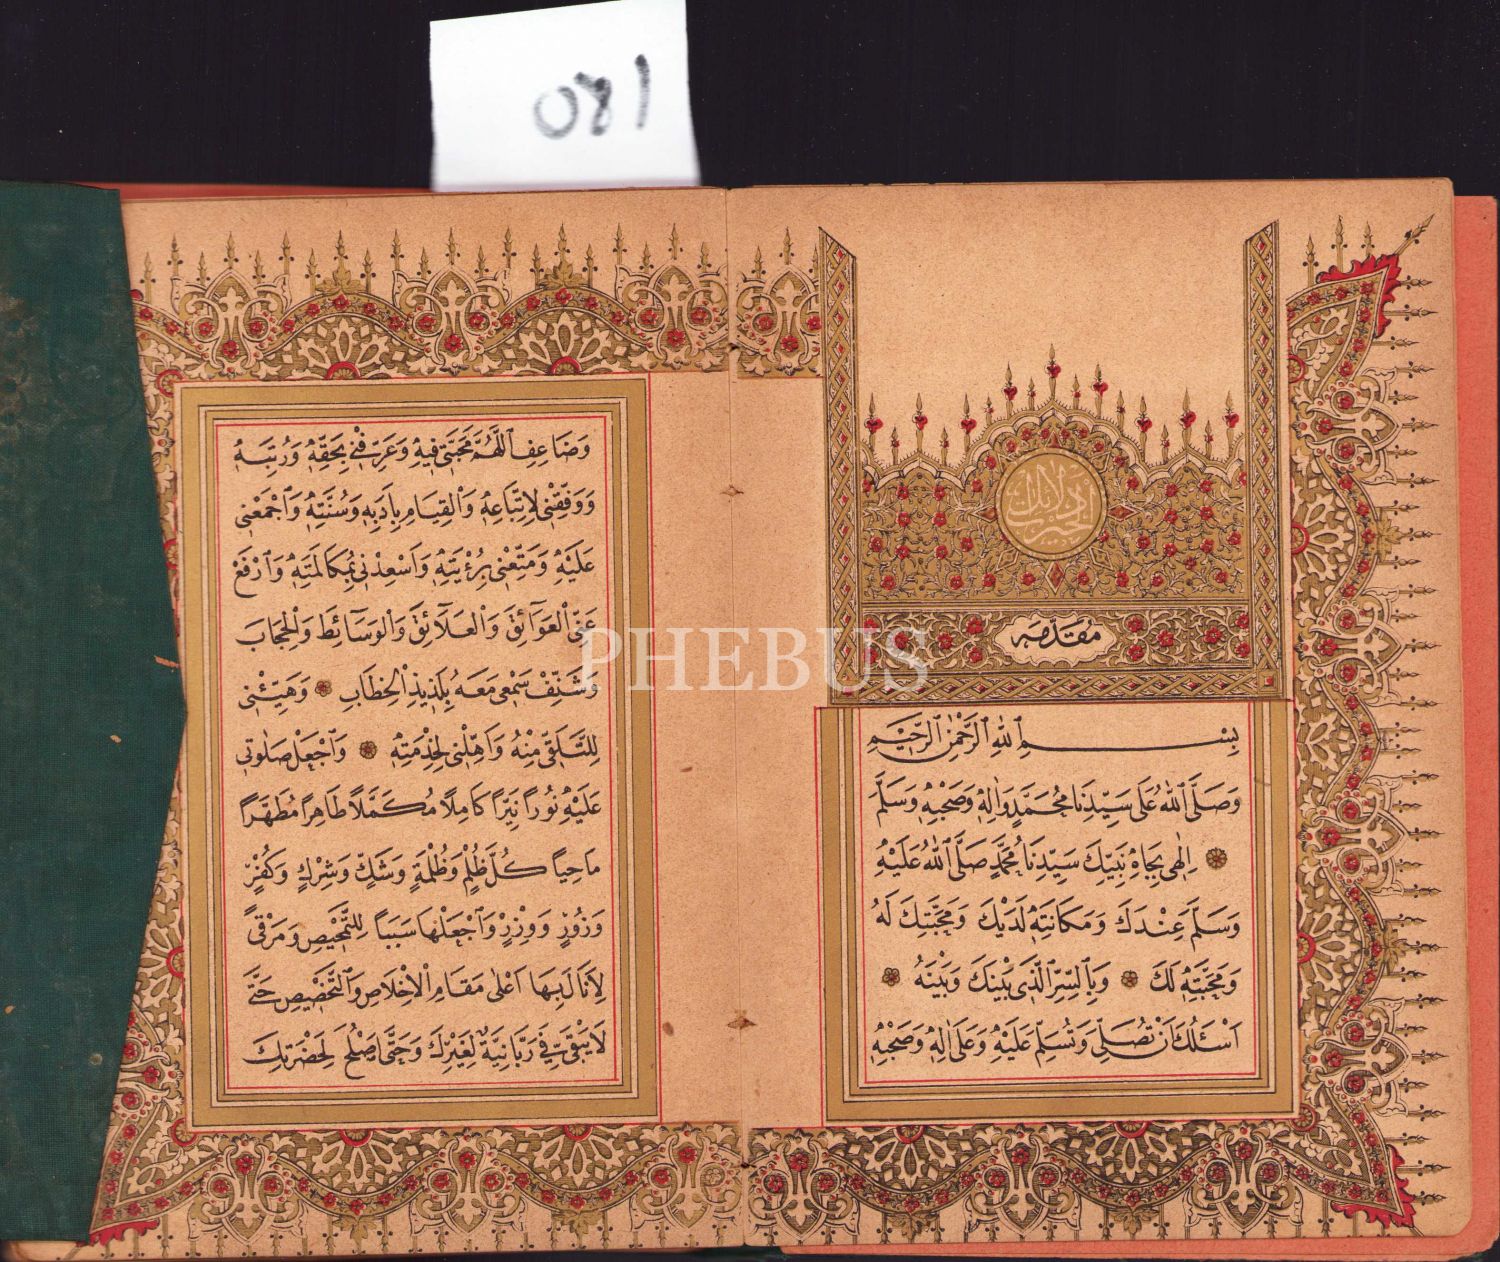 081
دلائل الخيرات
مقدمه
بِسْمِ اللهِ الرَّحْمٰنِ الرَّحِيمِ
وَصَلَّى اللهُ عَلَى سَيِّدِنَا مُحَمَّدٍ وَاٰلِهٖ وَصَحْبِهٖ وَسَلَّمَ
اِلٰهِى بِجَاهِ نَبِيِّكَ سَيِّدِنَا مُحَمَّدٍ صَلَّى اللهُ عَلَيْهِ
وَسَلَّمَ عِنْدَكَ وَمَكَانَتِهٖ لَدَيْكَ وَمَحَبَّتِكَ لَهُ
وَمَحَبَّتِهٖ لَكَ وَبِالسِّرِّ الَّذِى بَيْنَكَ وَبَيْنَهُ
اَسْئَلُكَ اَنْ تُصَلِّىَ وَتُسَلِّمَ عَلَيْهِ وَعَلَى اٰلِهٖ وَصَحْبِهٖ
وَضَاعِفِ اللّٰهُمَّ مَحَبَّتِى فِيهِ وَعَرِّفْنِى بِحَقِّهٖ وَرُتَبِهٖ
وَوَفِّقْنِى لِاتِّبَاعِهٖ وَالْقِيَامِ بِاَدَبِهٖ وَسُنَّتِهٖ وَاجْمَعْنِى
عَلَيْهِ وَمَتِّعْنِى بِرُؤْيَتِهٖ وَاَسْعِدْنِى بِمُكَالَمَتِهٖ وَارْفَعْ
عَنِّى الْعَوَآئِقَ وَالْعَلَآئِقَ وَالْوَسَآئِطَ وَالْحِجَابَ
وَشَنِّفْ سَمْعِى مَعَهُ بِلَذِيذِ الْخِطَابِ وَهَيِّئْنِى
لِلتَّلَقِّى مِنْهُ وَاَهِّلْنِى لِخِدْمَتِهٖ وَاجْعَلْ صَلٰوتِى
عَلَيْهِ نُورًا نَيِّرًا كَامِلًا مُكَمَّلًا طَاهِرًا مُطَهَّرًا
مَاحِيًا كُلَّ ظُلْمٍ وَظُلْمَةٍ وَشَكٍّ وَشِرْكٍ وَكُفْرٍ
وَزُورٍ وَوِزْرٍ وَاجْعَلْهَا سَبَبًا لِلتَّمْحِيصِ وَمَرْقًى
لِاَنَالَ بِهَا اَعْلٰى مَقَامِ الْاِخْلَاصِ وَالتَّخْصِيصِ حَتَّى
لَا يَبْقٰى فِىَّ رَبَّانِيَّةٌ لِغَيْرِكَ وَحَتَّى اَصْلُحَ لِحَضْرَتِكَ
PHEBUS